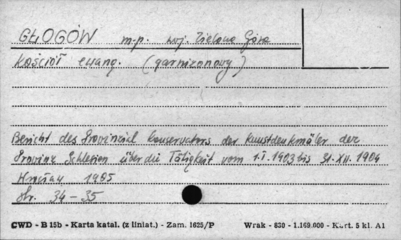 GŁOGÓW m.p. woj. Zielona Góra
Kościół ewang. (garnizonowy)
Bericht des Provinzial konservators der Kunstdenkmäler der
Provinz Schlesien über die Tätigkeit vom 1.I.1903 bis 31.XII.1904
str. 34-35
CWD - B 15b - Karta katal. (z liniat.) - Zam. 1625/P Wrak - 830 - 1.169.000 - Kart. 5 kl. A1